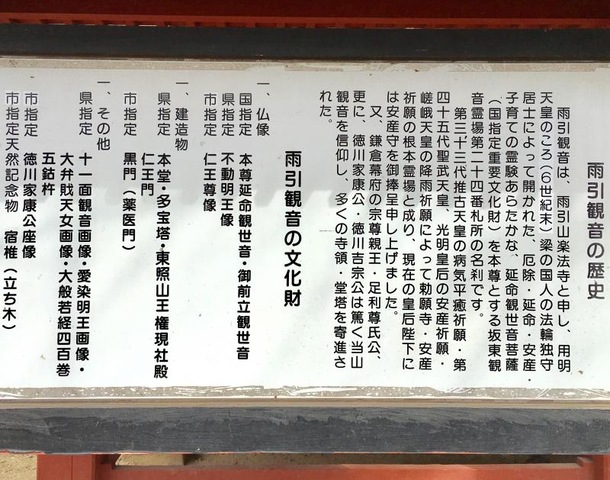 雨引観音の歴史
雨引観音は、雨引山楽法寺と申し、用明
天皇のころ(6世紀末)梁の国人の法輪独守
居士によって開かれた、厄除・延命・安産・
子育ての霊験あらたかな、延命観世音菩薩
(国指定重要文化財)を本尊とする坂東観
音霊場第二十四番札所の名刹です。
第三十三代推古天皇の病気平癒祈願・第
四十五代聖武天皇、光明皇后の安産祈願・
嵯峨天皇の降雨祈願によって勅願寺・安産
祈願の根本霊場と成り、現在の皇后陛下に
は安産守を御捧呈申し上げました。
又、鎌倉幕府の宗尊親王・足利尊氏公、
更に、徳川家康公・徳川吉宗公は篤く当山
観音を信仰し、多くの寺領・堂塔を寄進さ
れた。
雨引観音の文化財
一、仏像
国指定 本尊延命観世音・御前立観世音
県指定 不動明王像
市指定 仁王尊像
一、建造物
県指定 本堂・多宝塔・東照山王権現社殿
仁王門
市指定 黒門(薬医門)
一、その他
県指定 十一面観音画像・愛染明王画像・
大弁財天女画像・大般若経四百巻
五鈷杵
市指定 徳川家康公座像
市指定天然記念物 宿椎(立ち木)